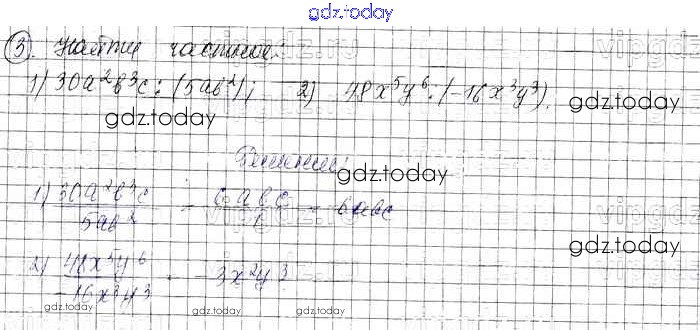 gdz.today
③. Найти частное:
1) 30a²b³c : (5ab²); 2) 48x⁵y⁶ : (−16x³y³).
gdz.today gdz.today
Решение:
gdz.today
1) 30a²b³c / 5ab² = 6abc / 1 = 6abc
2) 48x⁵y⁶ / −16x³y³ = −3x²y³
gdz.today gdz.today gdz.today
vipgdz.ru